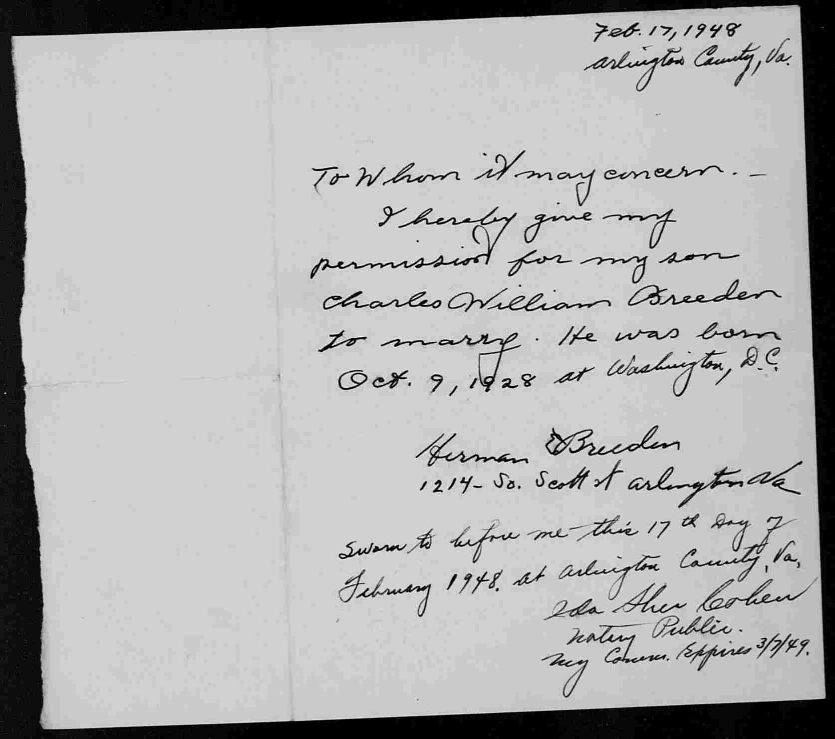 Feb. 17, 1948
Arlington County, Va.
To Whom it may concern. –
I hereby give my
permission for my son
Charles William Breeden
to marry. He was born
Oct. 9, 1928 at Washington, D.C.
Herman E Breeden
1214 – So. Scott St Arlington Va
Sworn to before me this 17th Day of
February 1948, at Arlington County, Va,
Ida Sher Cohen
Notary Public.
My Comm. Expires 3/7/49.